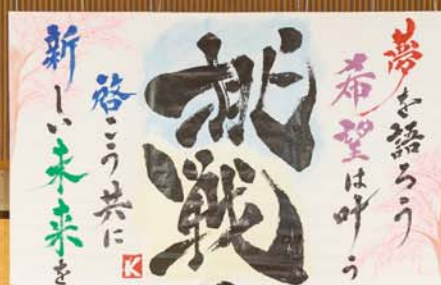 夢を語ろう
希望は叶う
挑戦
啓こう共に
新しい未来を
K